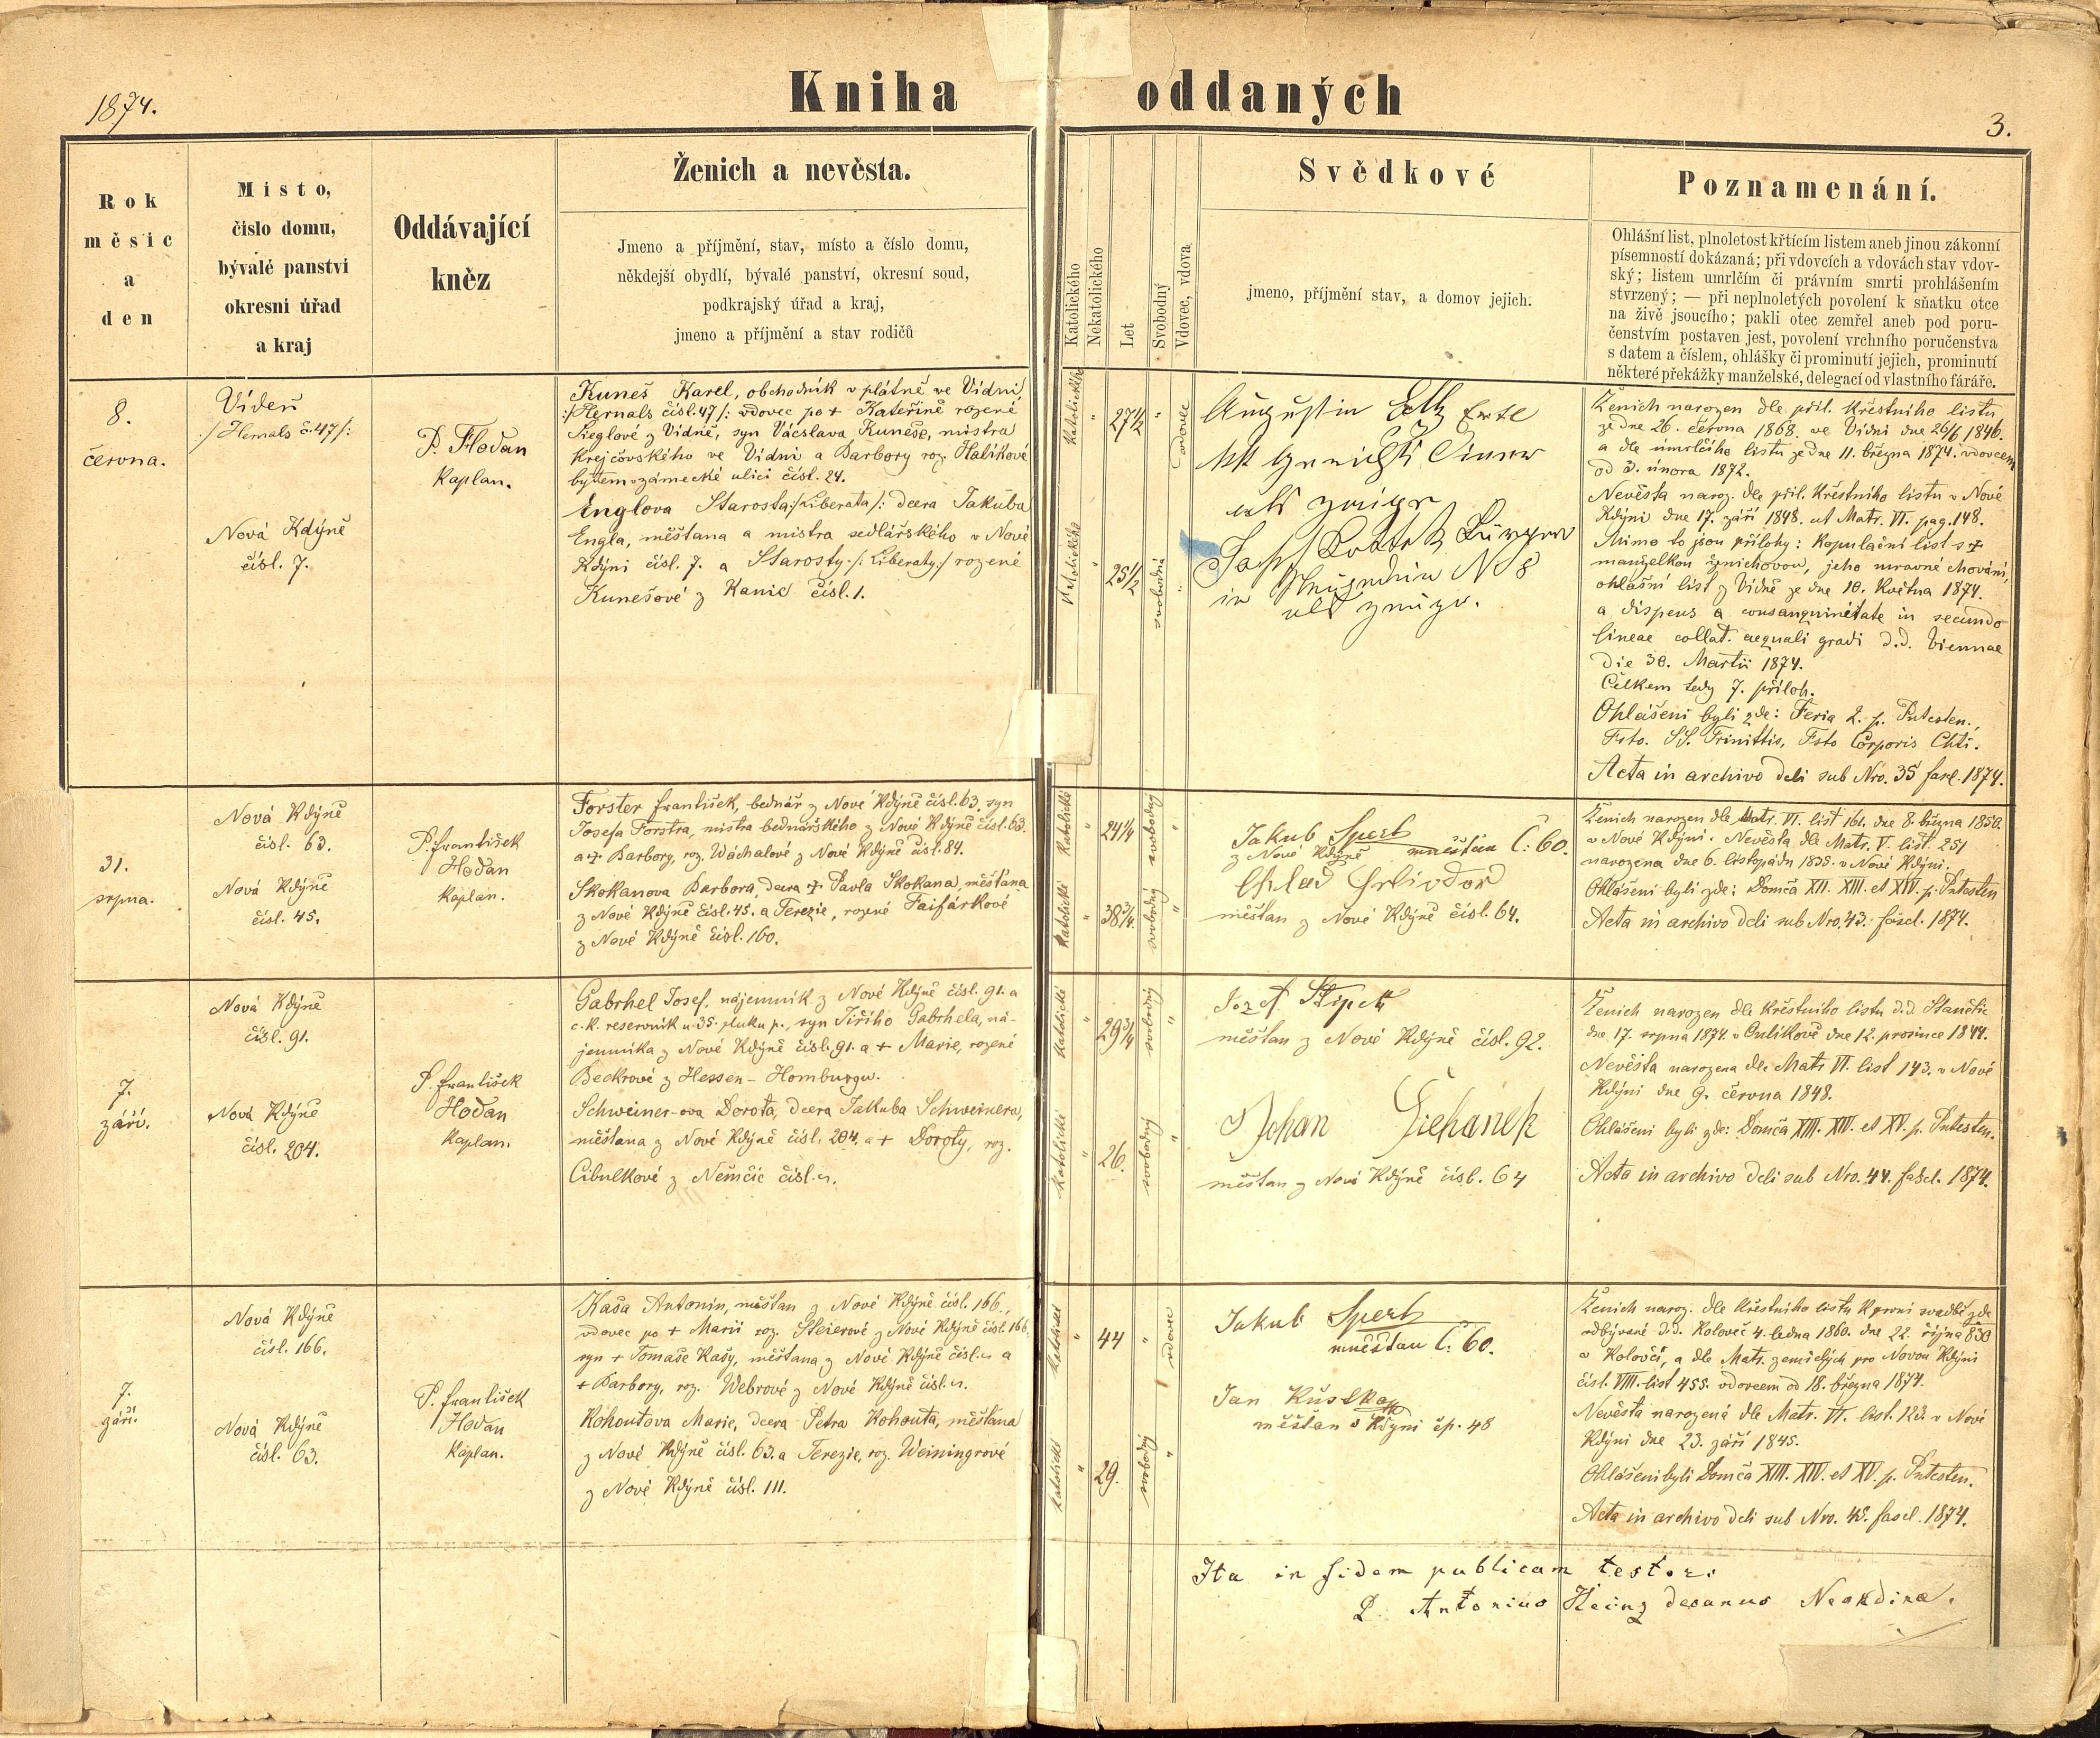 1874.
Kniha oddaných
3.
Rok
měsíc
a
den
Misto,
čislo domu,
bývalé panství
okresni úřad
a kraj
Oddávající
kněz
Ženich a nevěsta.
Jmeno a příjmění, stav, místo a číslo domu,
někdejší obydlí, bývalé panství, okresní soud,
podkrajský úřad a kraj,
jmeno a příjmění a stav rodičů
Katolického
Nekatolického
Let
Svobodný
Vdovec, vdova
Svědkové
jmeno, příjmění stav, a domov jejich.
Poznamenání.
Ohlášní list, plnoletost křtícím listem aneb jinou zákonní
písemností dokázaná; při vdovcích a vdovách stav vdov-
ský; listem umrlčím či právním smrti prohlášením
stvrzený; — při neplnoletých povolení k sňatku otce
na živě jsoucího; pakli otec zemřel aneb pod poru-
čenstvím postaven jest, povolení vrchního poručenstva
s datem a číslem, ohlášky či prominutí jejich, prominutí
některé překážky manželské, delegací od vlastního fáráře.
8.
června.
Vídeň
:/Hernals č.47/:
Nová Kdýně
čísl. 7.
P. Hodan
Kaplan.
Kuneš Karel, obchodník v plátně ve Vídni,
:/Hernals čísl. 47/: vdovec po + Kateřině rozené
Sieglové z Vídně, syn Vácslava Kuneše, mistra
krejčovského ve Vídni a Barbory roz. Halíkové
bytem v zámecké ulici čísl. 24.
Englova Starosta:/Liberata/: dcera Jakuba
Engla, měšťana a mistra sedlářského v Nové
Kdýni čísl. 7. a Starosty:/:Liberaty:/ rozené
Kunešové z Kanic čísl. 1.
katolického
" 27½ " vdovec
katolického
" 25½ svobodná "
Augustin
als zeuge
Bürger
in Neugedein N 8
als zeuge.
Ženich narozen dle příl. křestního listu
ze dne 26. června 1868. ve Vídni dne 26/6 1846.
a dle úmrlčího listu ze dne 11. března 1874. vdovcem
od 3. února 1872.
Nevěsta naroz. dle příl. křestního listu v Nové
Kdýni dne 17. září 1848. ut Matr. VI. pag. 148.
Mimo to jsou přílohy: kopulační list s +
manželkou ženichovou, jeho mravné chování,
ohlašní list z Vídně ze dne 10. května 1874.
a dispens a consanguinitate in secundo
lineae collat. aequali gradi d.d. Viennae
die 30. Martii 1874.
Celkem tedy 7. příloh.
Ohlášeni byli zde: Feria 2. p. Pntcsten.,
Fsto. SS. Trinittis, Fsto Corporis Chti.
Acta in archivo dcli sub Nro. 35 fascl. 1874.
31.
srpna.
Nová Kdýně
čísl. 63.
Nová Kdýně
čísl. 45.
P. František
Hodan
kaplan.
Forster František, bednář z Nové Kdýně čísl. 63. syn
Josefa Forstra, mistra bednářského z Nové Kdýně čísl. 63.
a + Barbory, roz. Wáchalové z Nové Kdýně čísl. 84.
Skokanova Barbora, dcera + Pavla Skokana, měšťana
z Nové Kdýně čísl. 45. a Terezie, rozené Faifárkové
z Nové Kdýně čísl. 160.
katolické
" 24¼ svobodný "
katolické
" 38¾ svobodný "
Jakub Sperl
z Nové Kdýně měšťan Č: 60.
měšťan z Nové Kdýně čísl. 64.
Ženich narozen dle Matr. VI. list 161. dne 8. března 1850.
v Nové Kdýni. Nevěsta dle Matr. V. list. 251
narozena dne 6. listopadu 1835. v Nové Kdýni.
Ohlášeni byli zde: Domca XII. XIII. et XIV. p. Pntcsten
Acta in archivo dcli sub Nro. 43. fascl. 1874.
7.
září.
Nová Kdýně
čísl. 91.
Nová Kdýně
čísl. 204.
P. František
Hodan
kaplan.
Gabrhel Josef, nájemník z Nové Kdýně čísl. 91. a
c. k. reservník u 35. pluku p., syn Jiřího Gabrhela, ná-
jemníka z Nové Kdýně čísl. 91. a + Marie, rozené
Beckrové z Hessen-Homburgu.
Schweiner-ova Dorota, dcera Jakuba Schweinera,
měšťana z Nové Kdýně čísl. 204. a + Doroty, roz.
Cibulkové z Němčic čísl.
katolické
" 29¾ svobodný "
katolické
" 26. svobodný "
Josef
měšťan z Nové Kdýně čísl. 92.
Johan
měšťan z Nové Kdýně čísl. 64
Ženich narozen dle křestního listu d.d. Stanětic
dne 17. srpna 1874. v Oulíkově dne 12. prosince 1844.
Nevěsta narozena dle Matr. VI. list 143. v Nové
Kdýni dne 9. června 1848.
Ohlášeni byli zde: Domca XIII. XIV. et XV. p. Pntcsten.
Acta in archivo dcli sub Nro. 44. fascl. 1874.
7.
září.
Nová Kdýně
čísl. 166.
Nová Kdýně
čísl. 63.
P. František
Hodan
kaplan.
Kaša Antonín, měšťan z Nové Kdýně čísl. 166.,
vdovec po + Marii roz. Steierové z Nové Kdýně čísl. 166,
syn + Tomaše Kašy, měšťana z Nové Kdýně čísl. a
+ Barbory, roz. Webrové z Nové Kdýně čísl.
Kohoutova Marie, dcera Petra Kohouta, měšťana
z Nové Kdýně čísl. 63. a Terezie, roz. Weiningrové
z Nové Kdýně čísl. 111.
katolické
" 44 " vdovec
katolické
" 29. svobodný "
Jakub Sperl
měšťan Č: 60.
Jan
měšťan v Kdyni čp. 48
Ženich naroz. dle křestního listu k první svadbě zde
odbývané d.d. Koloveč 4. ledna 1860. dne 22. října 830
v Kolovči, a dle Matr. zemřelých pro Novou Kdýni
čísl. VIII. list 455. vdovcem od 18. března 1874.
Nevěsta narozená dle Matr. VI. list. 123. v Nové
Kdýni dne 23. září 1845.
Ohlášeni byli Domca XIII. XIV. et XV. p. Pntcsten.
Acta in archivo dcli sub Nro. 45. fascl. 1874.
Ita in fidem publicam testor:
P. Antonius Heinz decanus Neokdina.